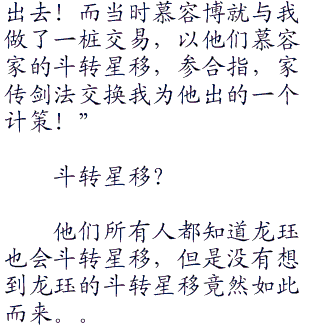 出去！而当时慕容博就与我
做了一桩交易，以他们慕容
家的斗转星移，参合指，家
传剑法交换我为他出的一个
计策！”
斗转星移？
他们所有人都知道龙珏
也会斗转星移，但是没有想
到龙珏的斗转星移竟然如此
而来。。